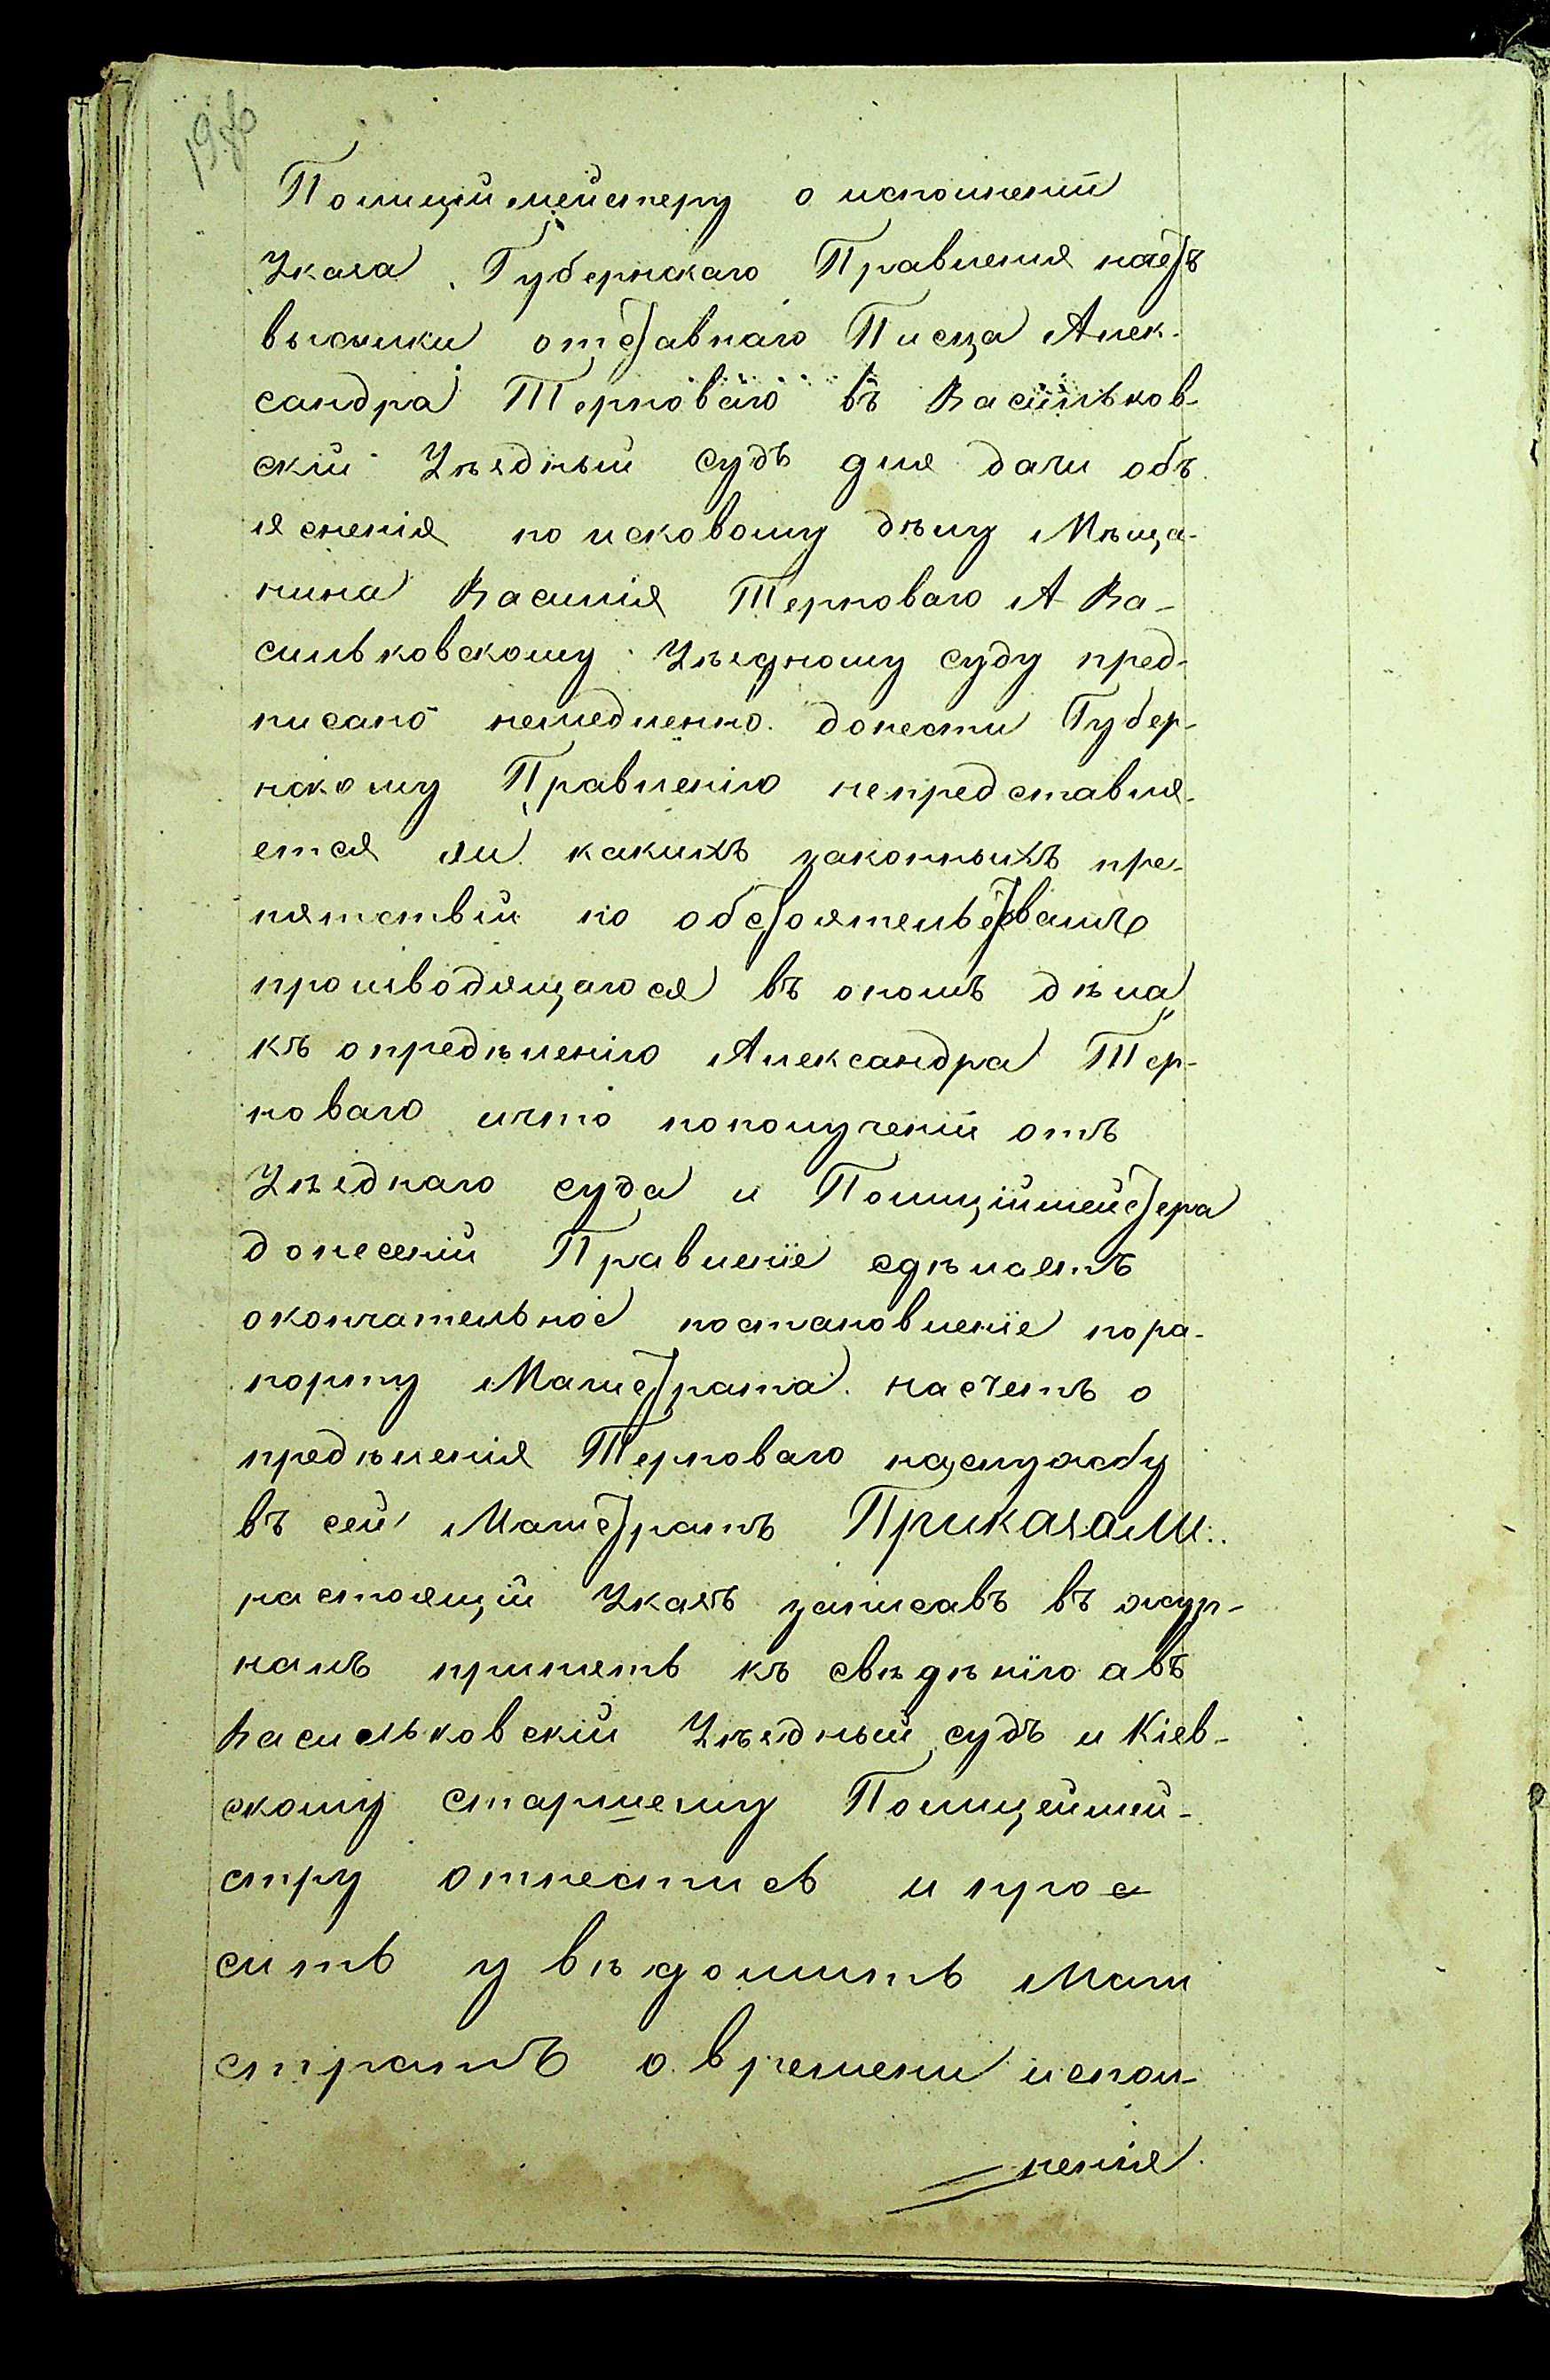 Полиціймейстеру о исполненіи
Указа Губернскаго Правленія насчетъ
высылки отставнаго Писца Алек-
сандра Терноваго въ Васильков-
скій Уѣздный судъ для дачи объ
ясненія по исковому дѣлу Мѣща-
нина Василія Терноваго А Ва-
сильковскому Уѣздному суду пред-
писано немедленно донести Губер-
нскому Правленію непредставля-
ется ли какихъ законныхъ пре-
пятствій по обстоятельствамъ
производящагося въ ономъ дѣла
къ опредѣленію Александра Тер-
новаго ичто пополученіи отъ
Уѣзднаго суда и Полиціймейстера
донесеній Правленіе сдѣлаетъ
окончательное постановленіе пора-
порту Магистрата насчетъ о
предѣленія Терноваго наслужбу
въ сей Магистратъ Приказали
настоящій Указъ записавъ въ жур-
налъ принять къ свѣдѣнію авъ
Васильковскій Уѣздный судъ и Кіев-
скому старшему Полицеймей-
стру отнестись и прос
сить увѣдомить Маги
стратъ о времени испол-
ненія